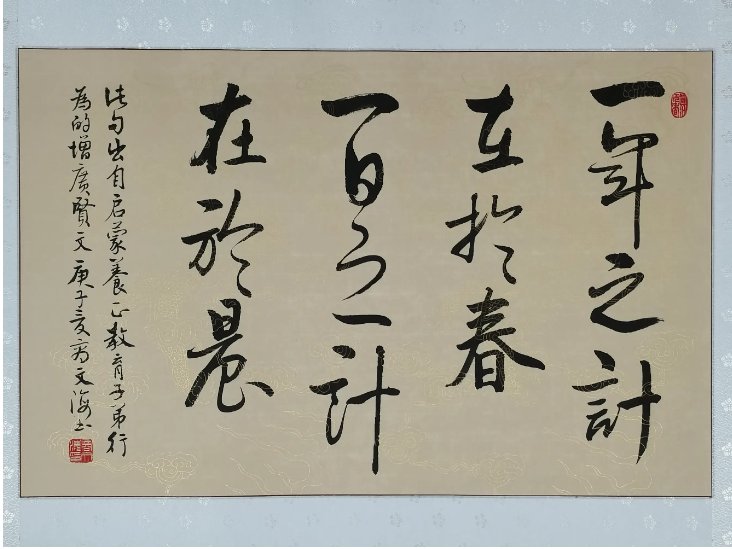 一年之計
在於春
一日之計
在於晨
此句出自启蒙養正教育子弟行
為的增廣賢文庚子夏文海书